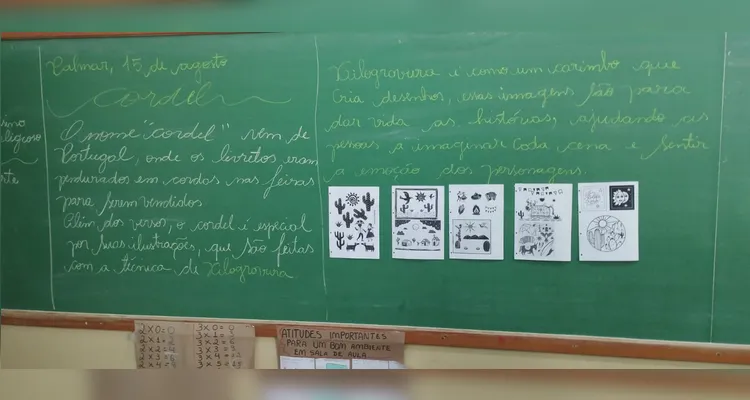 Calmar, 15 de agosto
Cordel
O nome "cordel" vem de
Portugal, onde os livretos eram
pendurados em cordas nas feiras
para serem vendidos.
Além dos versos, o cordel é especial
por suas ilustrações, que são feitas
com a técnica de Xilogravura
Xilogravura é como um carimbo que
cria desenhos, essas imagens são para
dar vida as histórias, ajudando as
pessoas a imaginar cada cena e sentir
a emoção dos personagens.
ligioso
rte
2x0=0
2x1=2
2x2=4
2x3=6
2x4=8
3x0=0
3x1=3
3x2=6
3x3=9
3x4=12
3x5=15
ATITUDES IMPORTANTES
PARA UM BOM AMBIENTE
EM SALA DE AULA